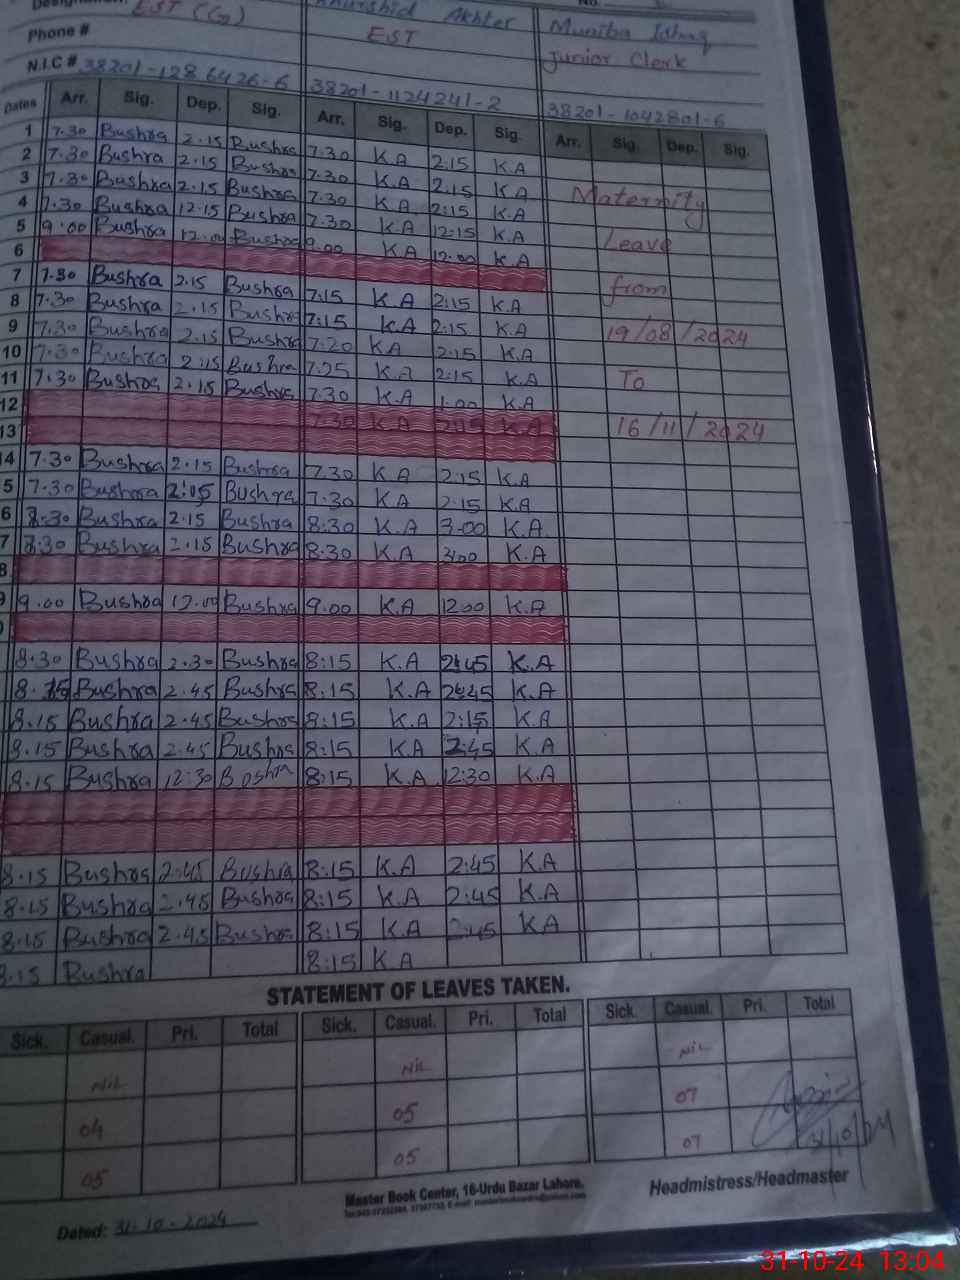 EST (G) Khurshid Akhter Muniba Ishaq
Phone # EST Junior Clerk
N.I.C # 38201-1286426-6 38201-1124241-2 38201-1042801-6
Dates Arr. Sig. Dep. Sig. Arr. Sig. Dep. Sig. Arr. Sig. Dep. Sig.
1 7.30 Bushra 2.15 Bushra 7.30 K.A 2.15 K.A
2 7.30 Bushra 2.15 Bushra 7.30 K.A 2.15 K.A Maternity
3 7.30 Bushra 2.15 Bushra 7.30 K.A 2:15 K.A
4 7.30 Bushra 12.15 Bushra 7.30 K.A 12:15 K.A Leave
5 9.00 Bushra 12.00 Bushra 9.00 K.A 12.00 K.A
6 from
7 7.30 Bushra 2.15 Bushra 7:15 K.A 2:15 K.A
8 7.30 Bushra 2.15 Bushra 7:15 K.A 2:15 K.A 19/08/2024
9 7.30 Bushra 2.15 Bushra 7:20 K.A 2.15 K.A
10 7.30 Bushra 2:15 Bushra 7.25 K.A 2:15 K.A To
11 7.30 Bushra 2.15 Bushra 7.30 K.A 1.00 K.A
12 16/11/2024
13 7.30 K.A 2:15 K.A
14 7.30 Bushra 2.15 Bushra 7.30 K.A 2.15 K.A
5 7.30 Bushra 2:15 Bushra 7.30 K.A 2.15 K.A
6 8.30 Bushra 2.15 Bushra 8:30 K.A 3.00 K.A
7 8:30 Bushra 2.15 Bushra 8.30 K.A 3:00 K.A
8
9 9.00 Bushra 12.00 Bushra 9.00 K.A 12.00 K.A
8.30 Bushra 2.30 Bushra 8:15 K.A 2:45 K.A
8.15 Bushra 2.45 Bushra 8:15 K.A 2:45 K.A
8.15 Bushra 2.45 Bushra 8:15 K.A 2:15 K.A
8.15 Bushra 2.45 Bushra 8:15 K.A 2:45 K.A
8.15 Bushra 12:30 Bushra 8:15 K.A 12:30 K.A
8.15 Bushra 2:45 Bushra 8:15 K.A 2:45 K.A
8.15 Bushra 2.45 Bushra 8:15 K.A 2:45 K.A
8.15 Bushra 2.45 Bushra 8:15 K.A 2:45 K.A
8.15 Bushra 8:15 K.A
STATEMENT OF LEAVES TAKEN.
Sick. Casual. Pri. Total Sick. Casual. Pri. Total Sick. Casual. Pri. Total
NiL NiL NiL
04 05 07
05 05 07
31/10/24
Master Book Center, 16-Urdu Bazar Lahore. Headmistress/Headmaster
Dated: 31-10-2024
31-10-24 13:04